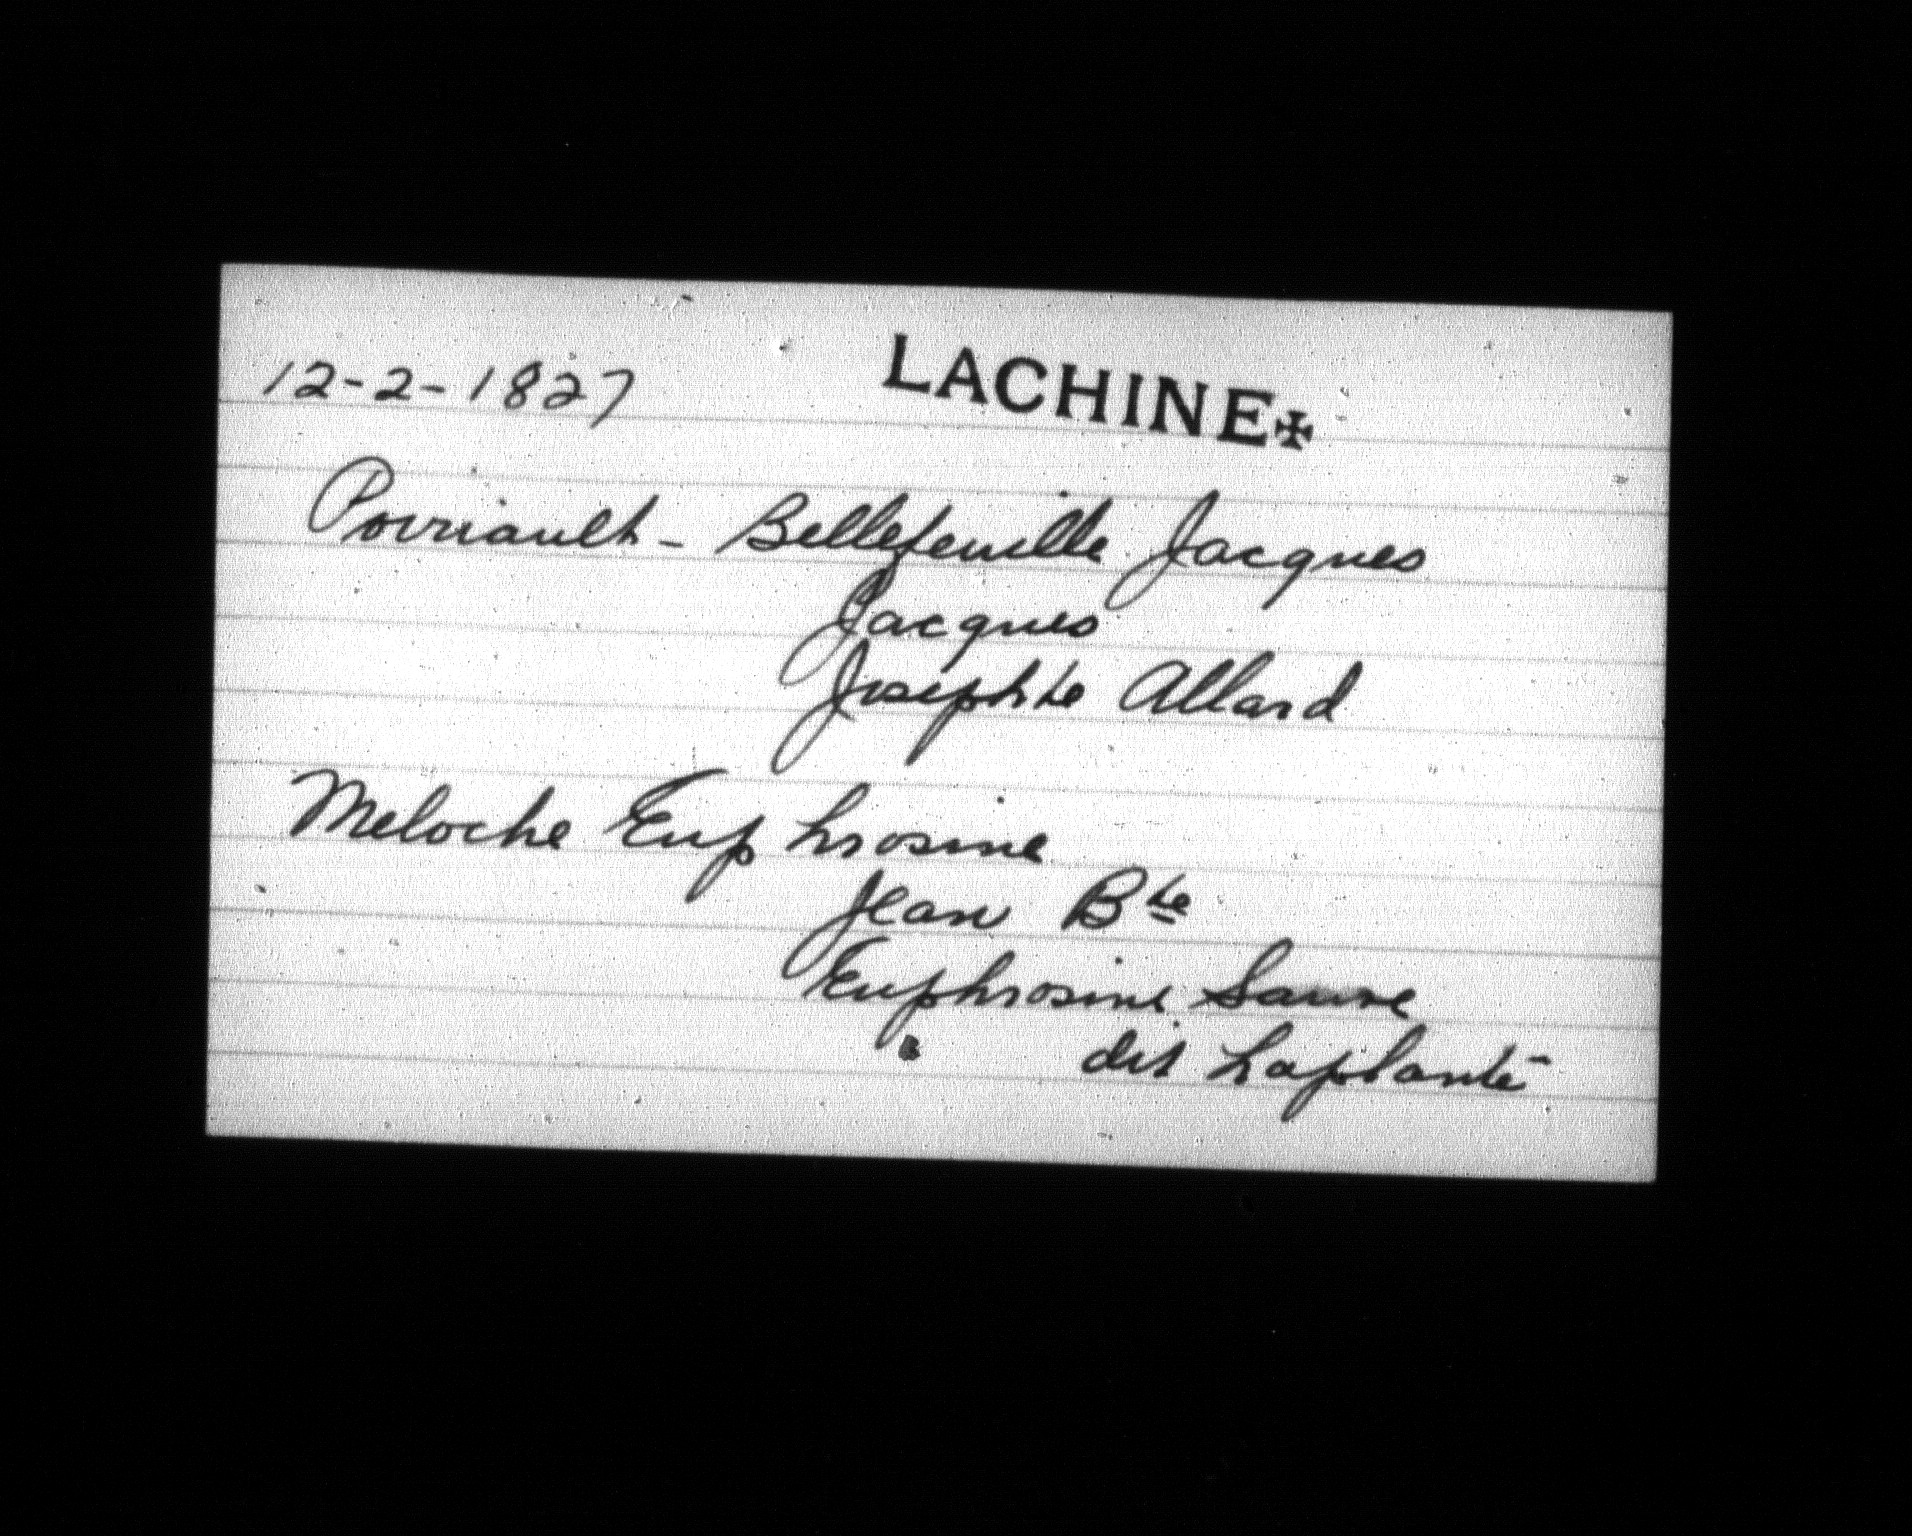 12-2-1827 LACHINE✠
Poirriault - Bellefeuille Jacques
Jacques
Josephte Allard
Meloche Euphrosine
Jean Bte
Euphrosine Sauve
dit Laplante